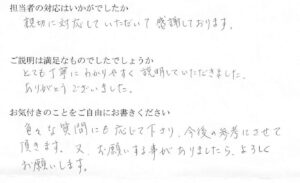 担当者の対応はいかがでしたか
親切に対応していただいて感謝しております。
ご説明は満足なものでしたでしょうか
とても丁寧にわかりやすく説明していただきました。
ありがとうございました。
お気付きのことをご自由にお書きください
色々な質問にも応じて下さり、今後の参考にさせて
頂きます。又、お願いする事がありましたら、よろしく
お願いします。